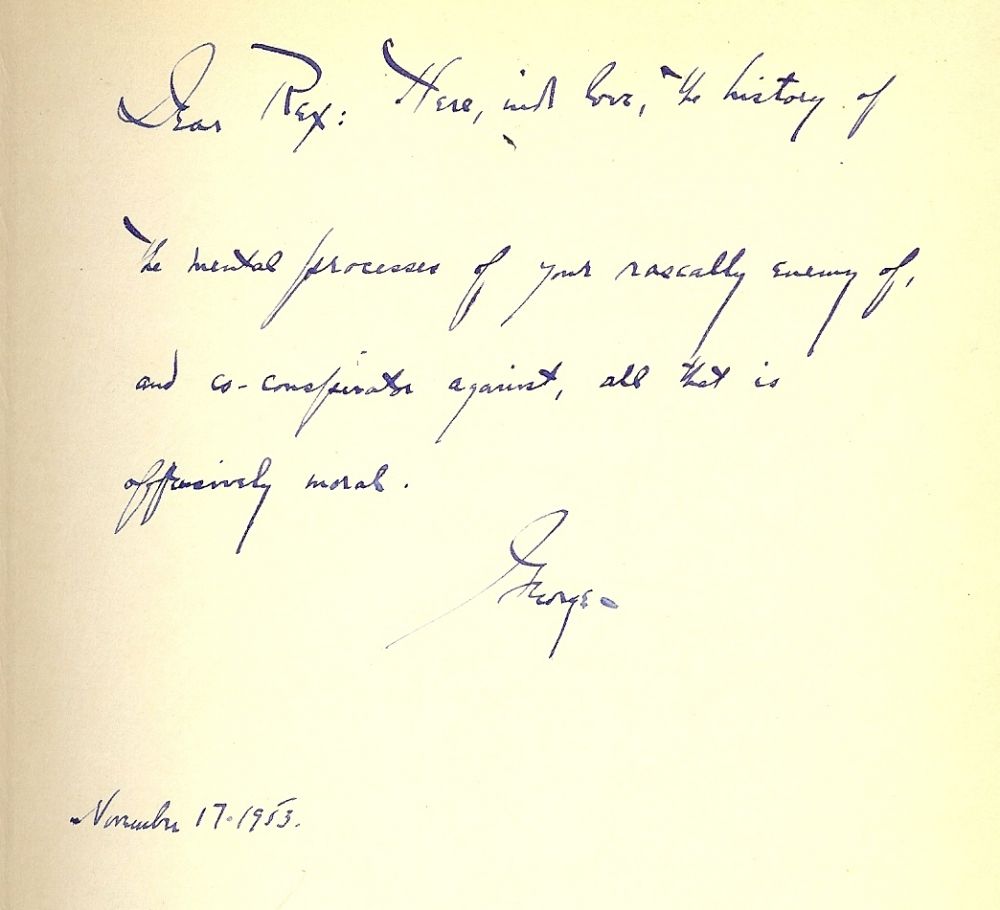 Dear Rex: Here, with love, the history of
the mental processes of your rascally enemy of,
and co-conspirator against, all that is
offensively moral.
George
November 17-1953.